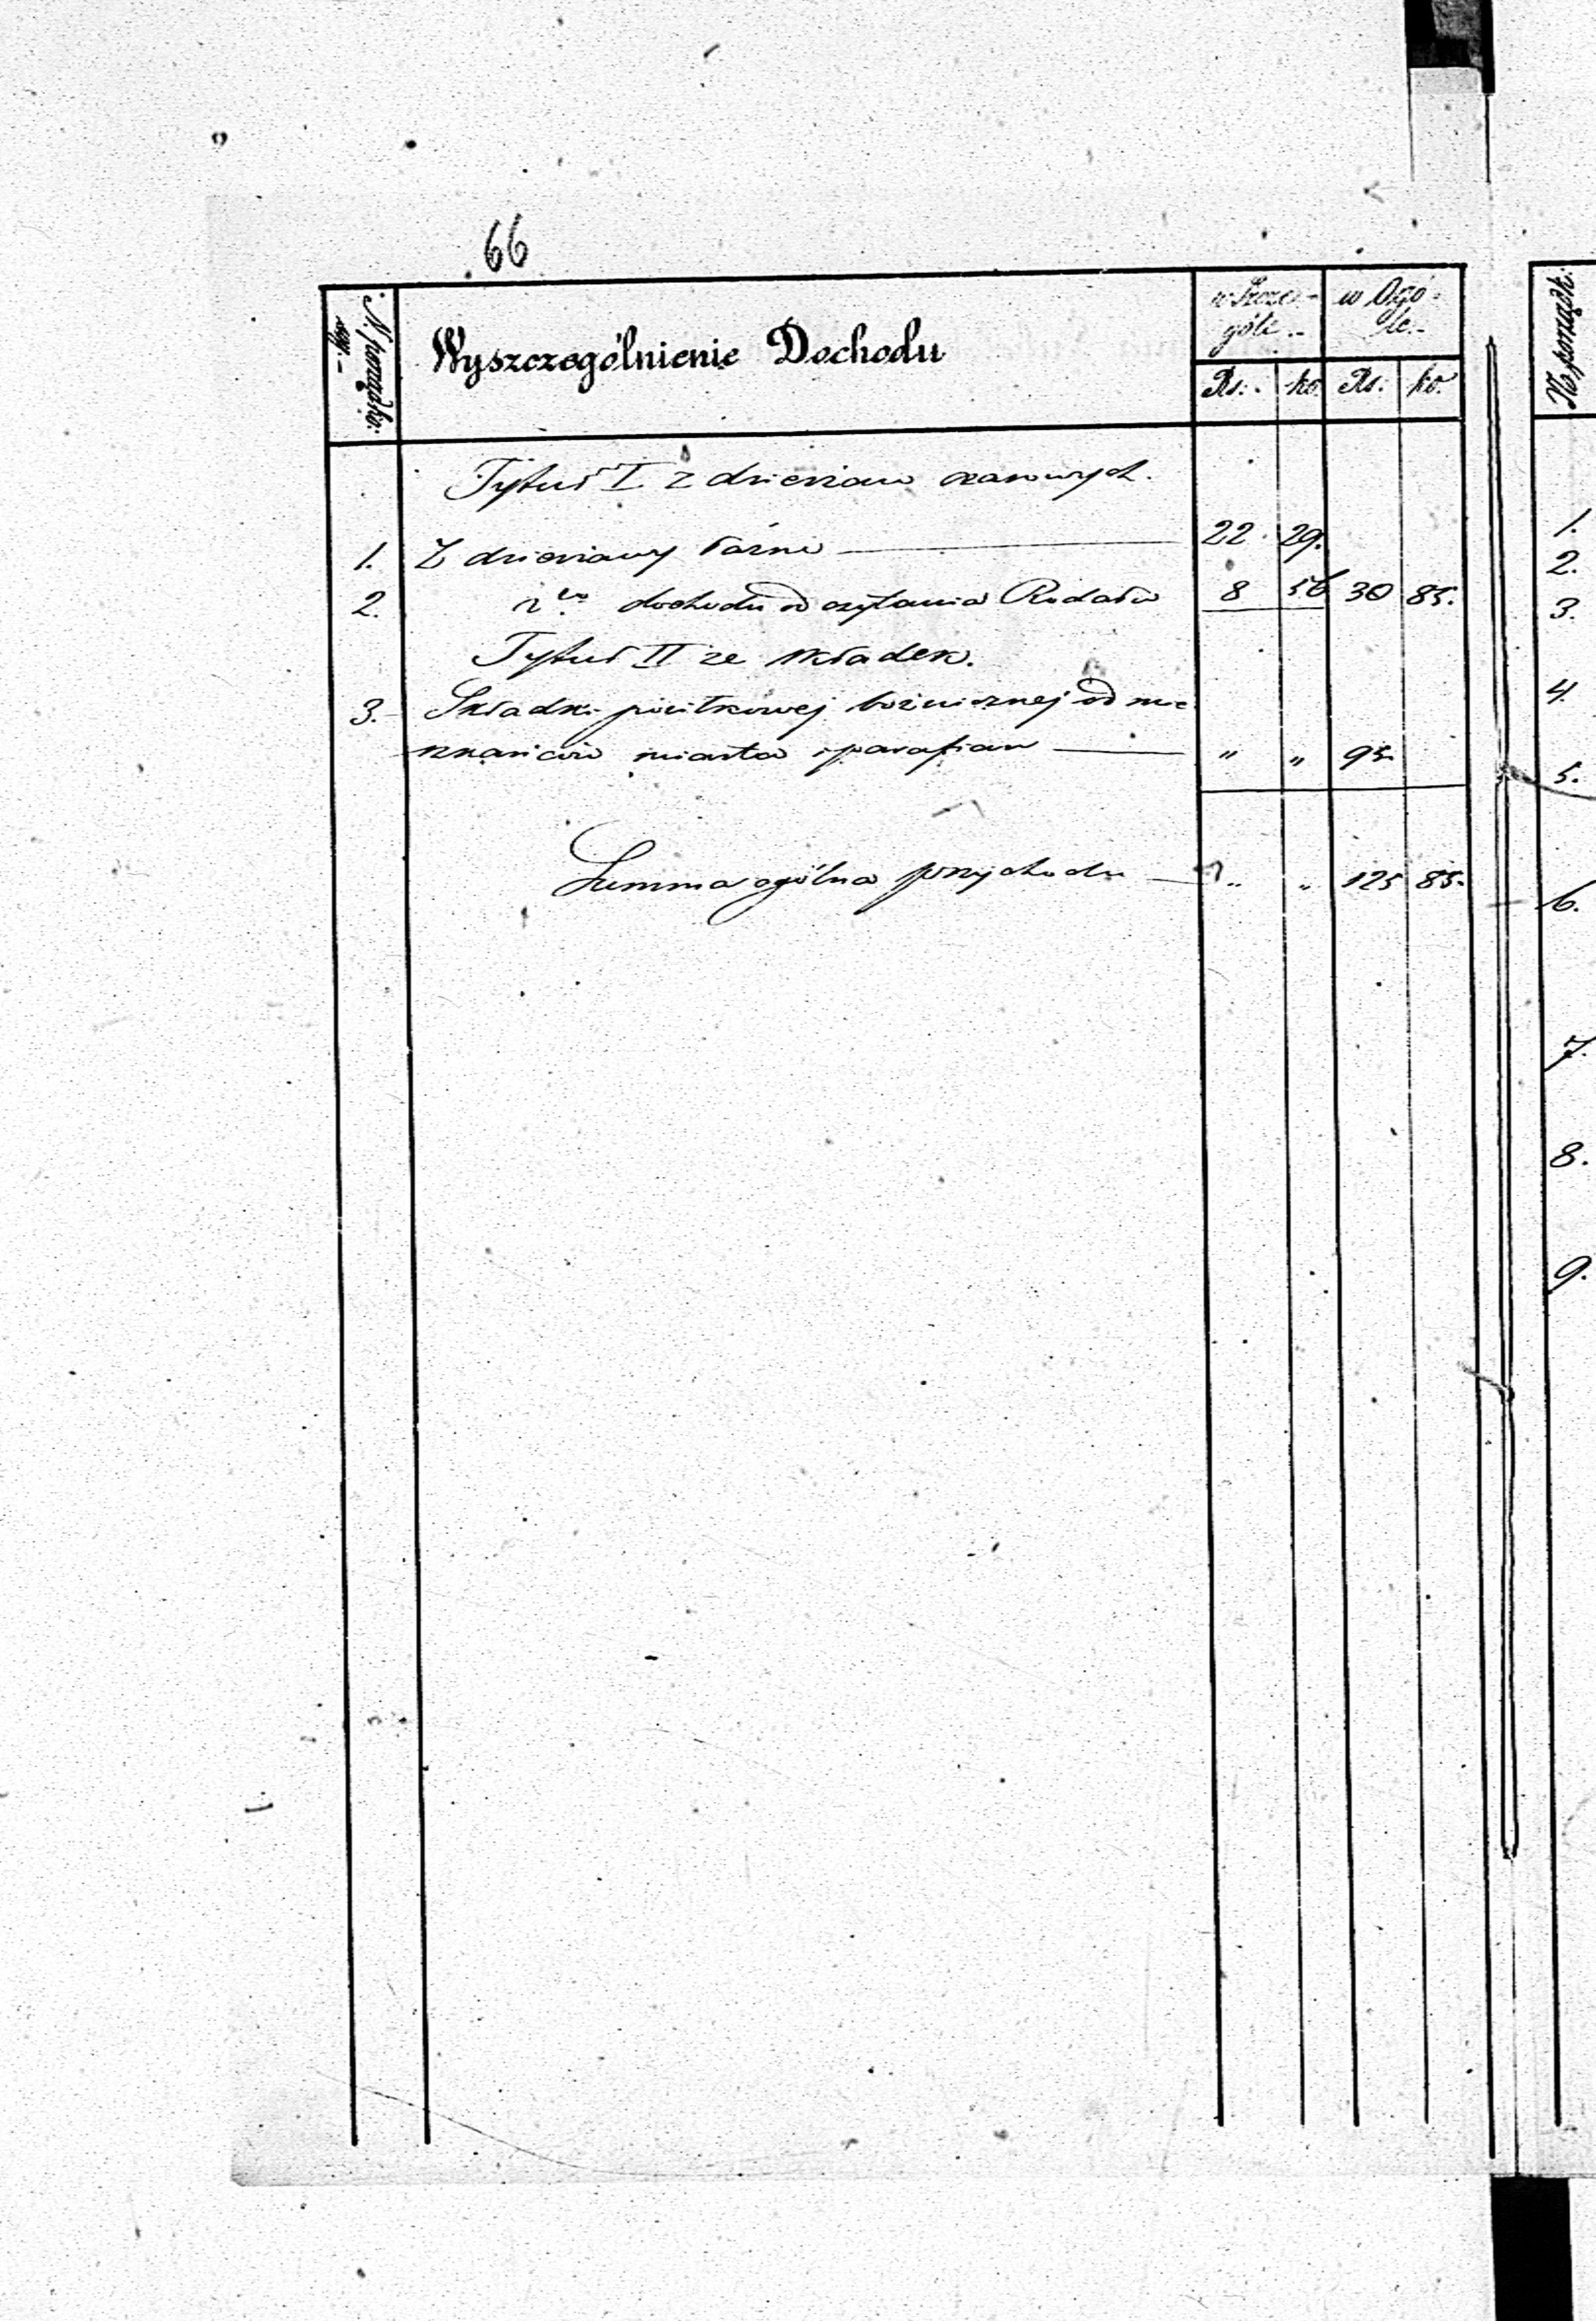 66
N. porządko:
wy.-
Wyszczególnienie Dochodu
w Szcze-
góle.-
w Ogó-
le.-
Rs:. ko. Rs: ko.
Tytuł I z dzierżaw czasowych.
1. Z dzierżawy łaźni 22. 29.
2. dochodu od czytania Rodału 8 56 30 85.
Tytuł II ze składek.
3. Składki bożnicznej od mie
szkańców miasta i parafian " " 95.
Summa ogólna przychodu " " 125 85.
N. porządk:
1.
2.
3.
4.
5.
6.
7.
8.
9.